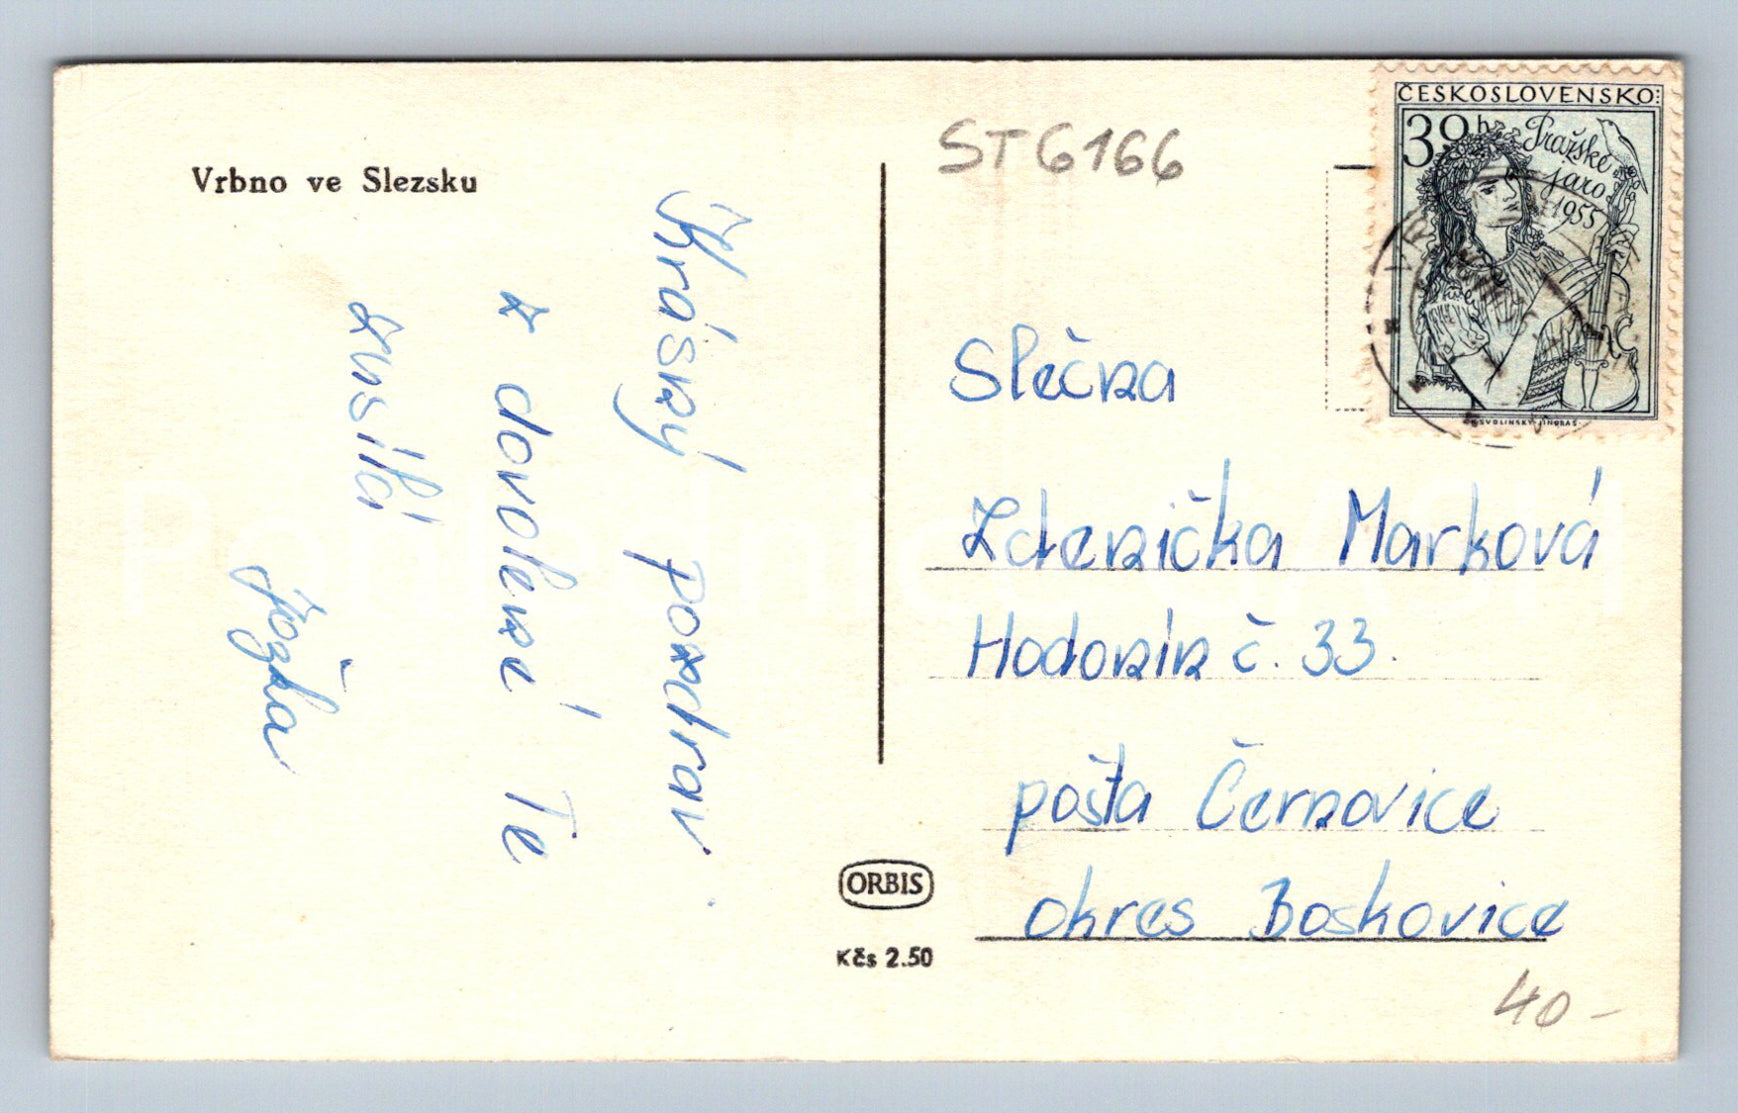 Vrbno ve Slezsku
Krásný pozdrav
z dovolené Te
zusílá
Jožka
ORBIS
Kčs 2.50
ST6166
ČESKOSLOVENSKO
30 h
Pražské
jaro
1955
Slečna
Zdenička Marková
Hodonín č. 33.
pošta Černovice
okres Boskovice
40-